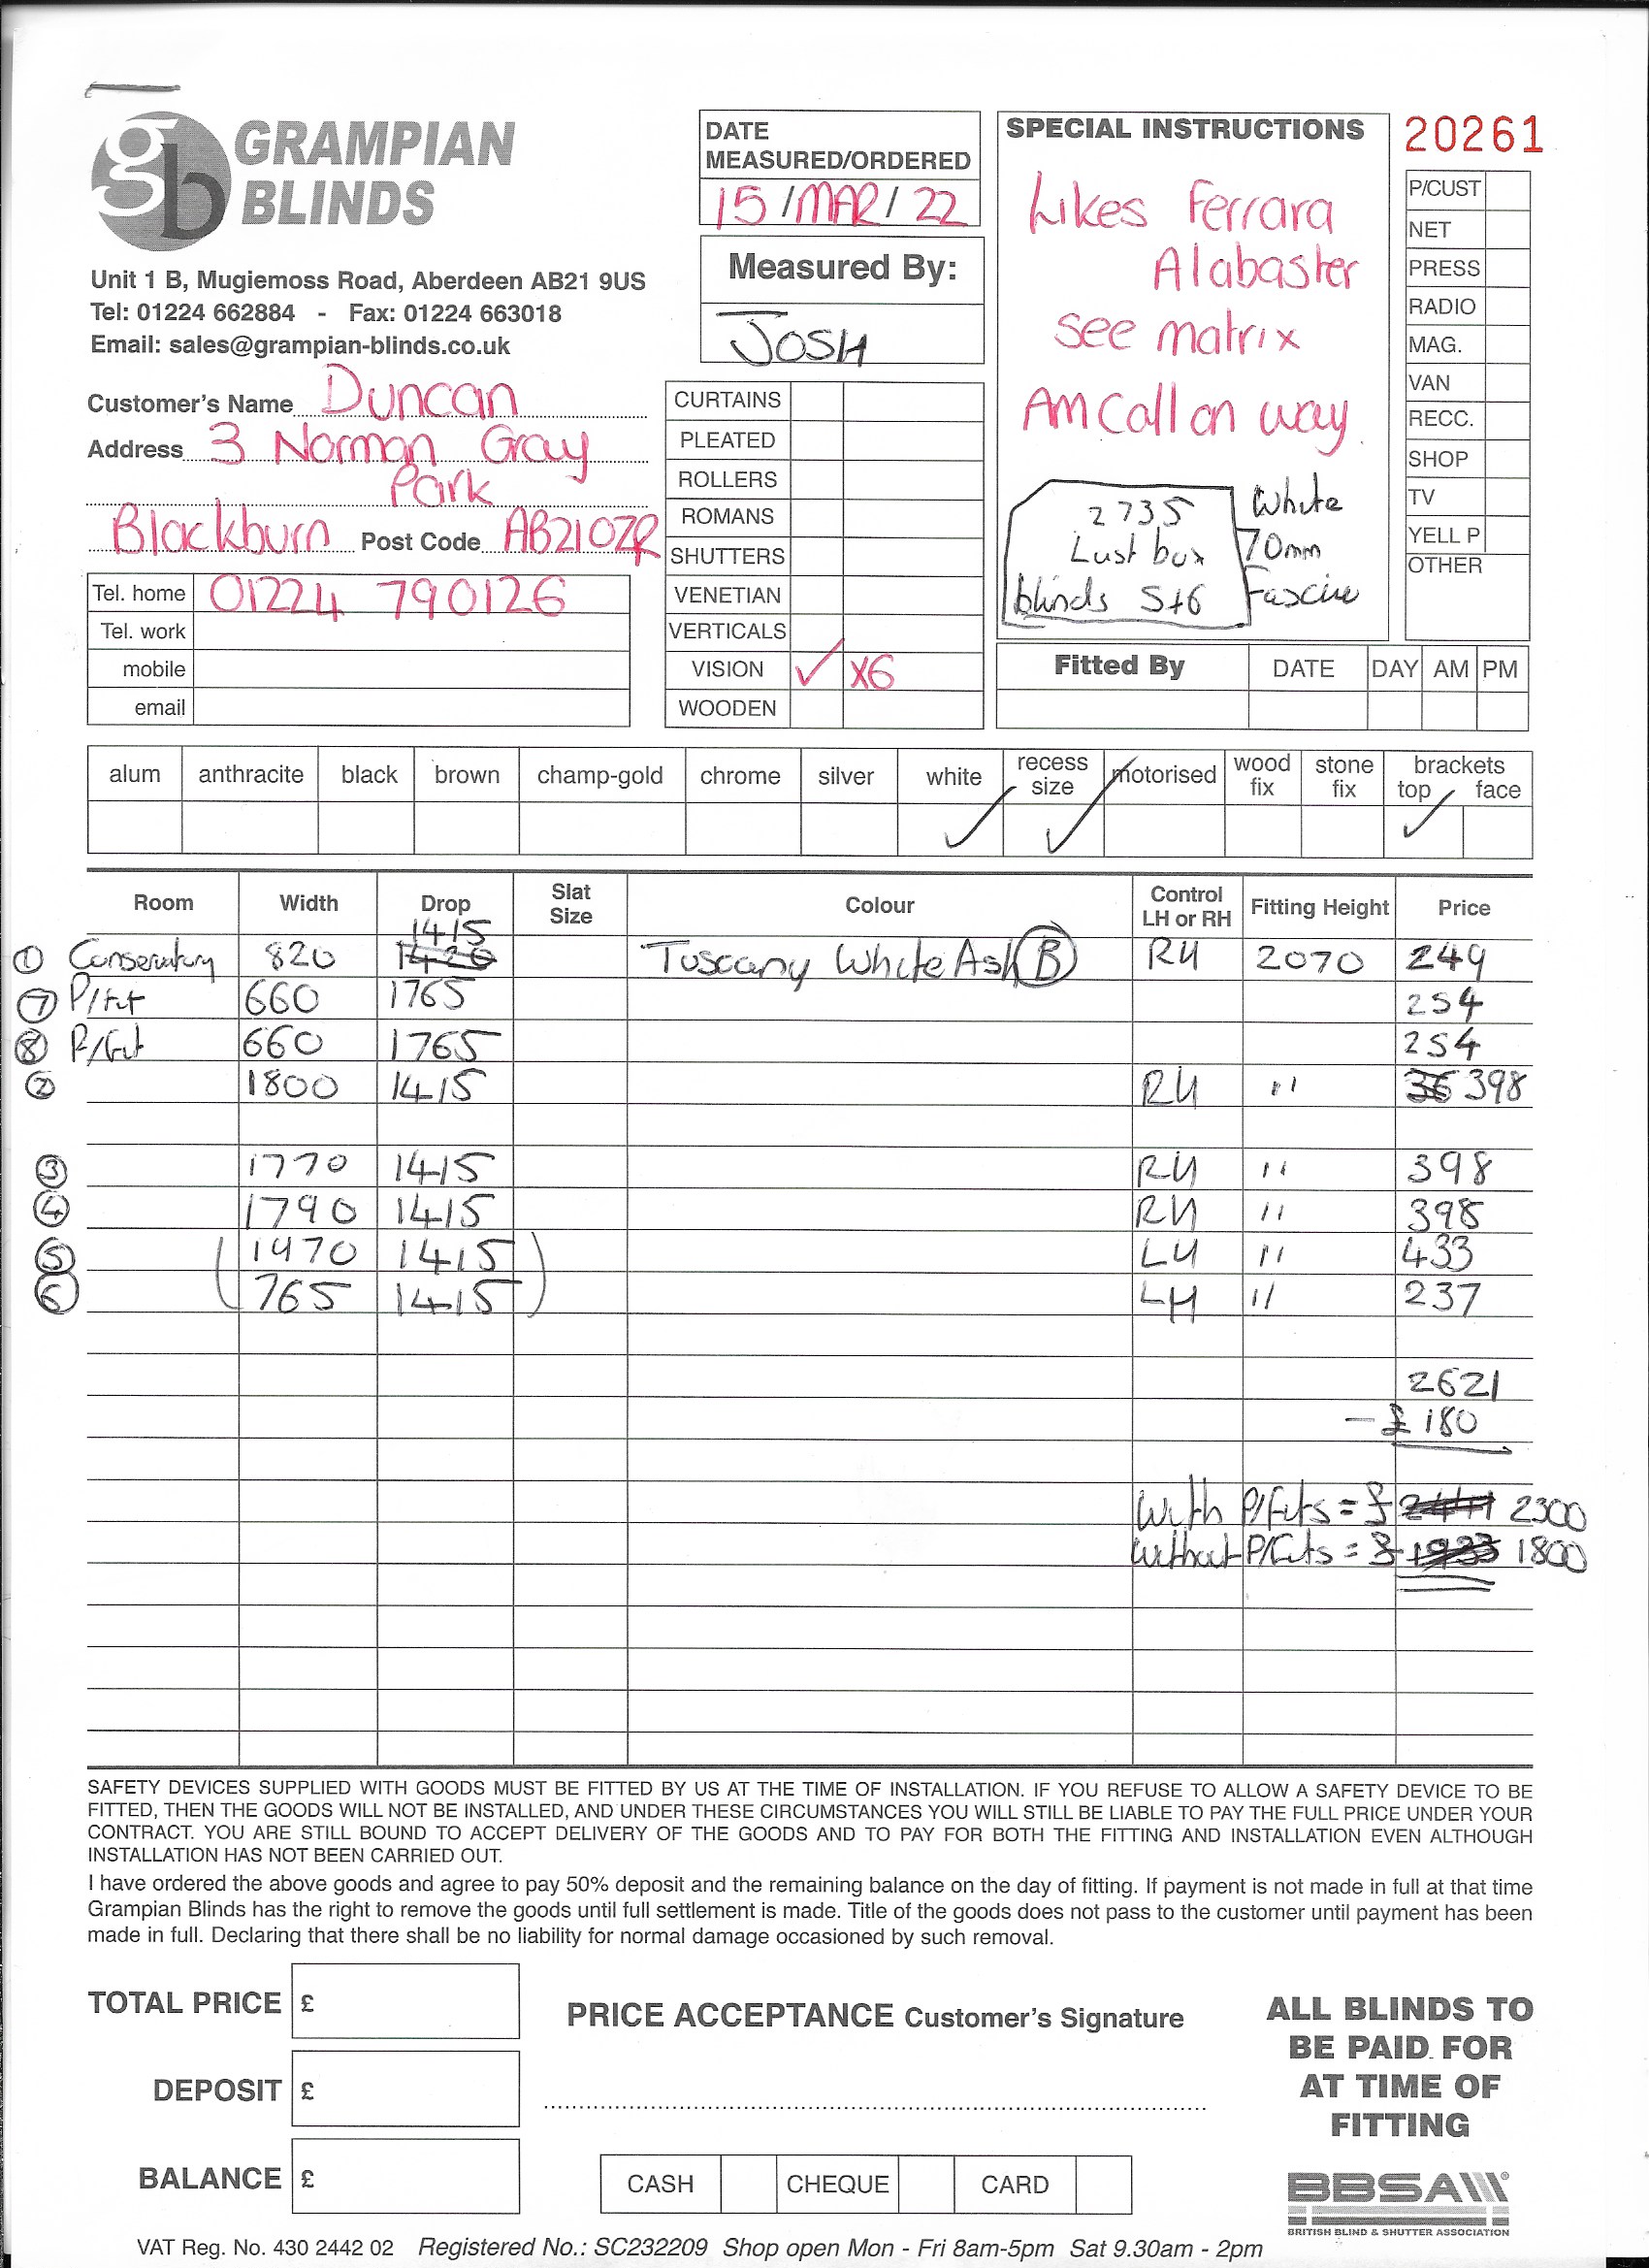 GRAMPIAN
BLINDS
Unit 1 B, Mugiemoss Road, Aberdeen AB21 9US
Tel: 01224 662884 - Fax: 01224 663018
Email: sales@grampian-blinds.co.uk
Customer's Name Duncan
Address 3 Norman Gray
Park
Blackburn Post Code AB21 0ZR
Tel. home 01224 790126
Tel. work
mobile
email
DATE
MEASURED/ORDERED
15/MAR/22
Measured By:
JOSH
CURTAINS
PLEATED
ROLLERS
ROMANS
SHUTTERS
VENETIAN
VERTICALS
VISION ✓ X6
WOODEN
SPECIAL INSTRUCTIONS
Likes Ferrara
Alabaster
see matrix
AM Call on way
2735 White
box 70mm
blinds 5+6
20261
P/CUST
NET
PRESS
RADIO
MAG.
VAN
RECC.
SHOP
TV
YELL P
OTHER
Fitted By DATE DAY AM PM
alum anthracite black brown champ-gold chrome silver white recess size motorised wood fix stone fix brackets top face
✓ ✓ ✓
Room Width Drop Slat Size Colour Control LH or RH Fitting Height Price
1415
① Conservatory 820 1420 Tuscany White Ash B RH 2070 249
⑦ P/Fit 660 1765 254
⑧ P/Fit 660 1765 254
② 1800 1415 RH " 36 398
③ 1770 1415 RH " 398
④ 1790 1415 RH " 398
⑤ 1970 1415 LH " 433
⑥ 765 1415 LH " 237
2621
- £180
With P/Fits = £2441 2300
Without P/Fits = £1933 1800
SAFETY DEVICES SUPPLIED WITH GOODS MUST BE FITTED BY US AT THE TIME OF INSTALLATION. IF YOU REFUSE TO ALLOW A SAFETY DEVICE TO BE
FITTED, THEN THE GOODS WILL NOT BE INSTALLED, AND UNDER THESE CIRCUMSTANCES YOU WILL STILL BE LIABLE TO PAY THE FULL PRICE UNDER YOUR
CONTRACT. YOU ARE STILL BOUND TO ACCEPT DELIVERY OF THE GOODS AND TO PAY FOR BOTH THE FITTING AND INSTALLATION EVEN ALTHOUGH
INSTALLATION HAS NOT BEEN CARRIED OUT.
I have ordered the above goods and agree to pay 50% deposit and the remaining balance on the day of fitting. If payment is not made in full at that time
Grampian Blinds has the right to remove the goods until full settlement is made. Title of the goods does not pass to the customer until payment has been
made in full. Declaring that there shall be no liability for normal damage occasioned by such removal.
TOTAL PRICE £
DEPOSIT £
BALANCE £
PRICE ACCEPTANCE Customer's Signature
CASH CHEQUE CARD
ALL BLINDS TO
BE PAID FOR
AT TIME OF
FITTING
BBSA
BRITISH BLIND & SHUTTER ASSOCIATION
VAT Reg. No. 430 2442 02 Registered No.: SC232209 Shop open Mon - Fri 8am-5pm Sat 9.30am - 2pm